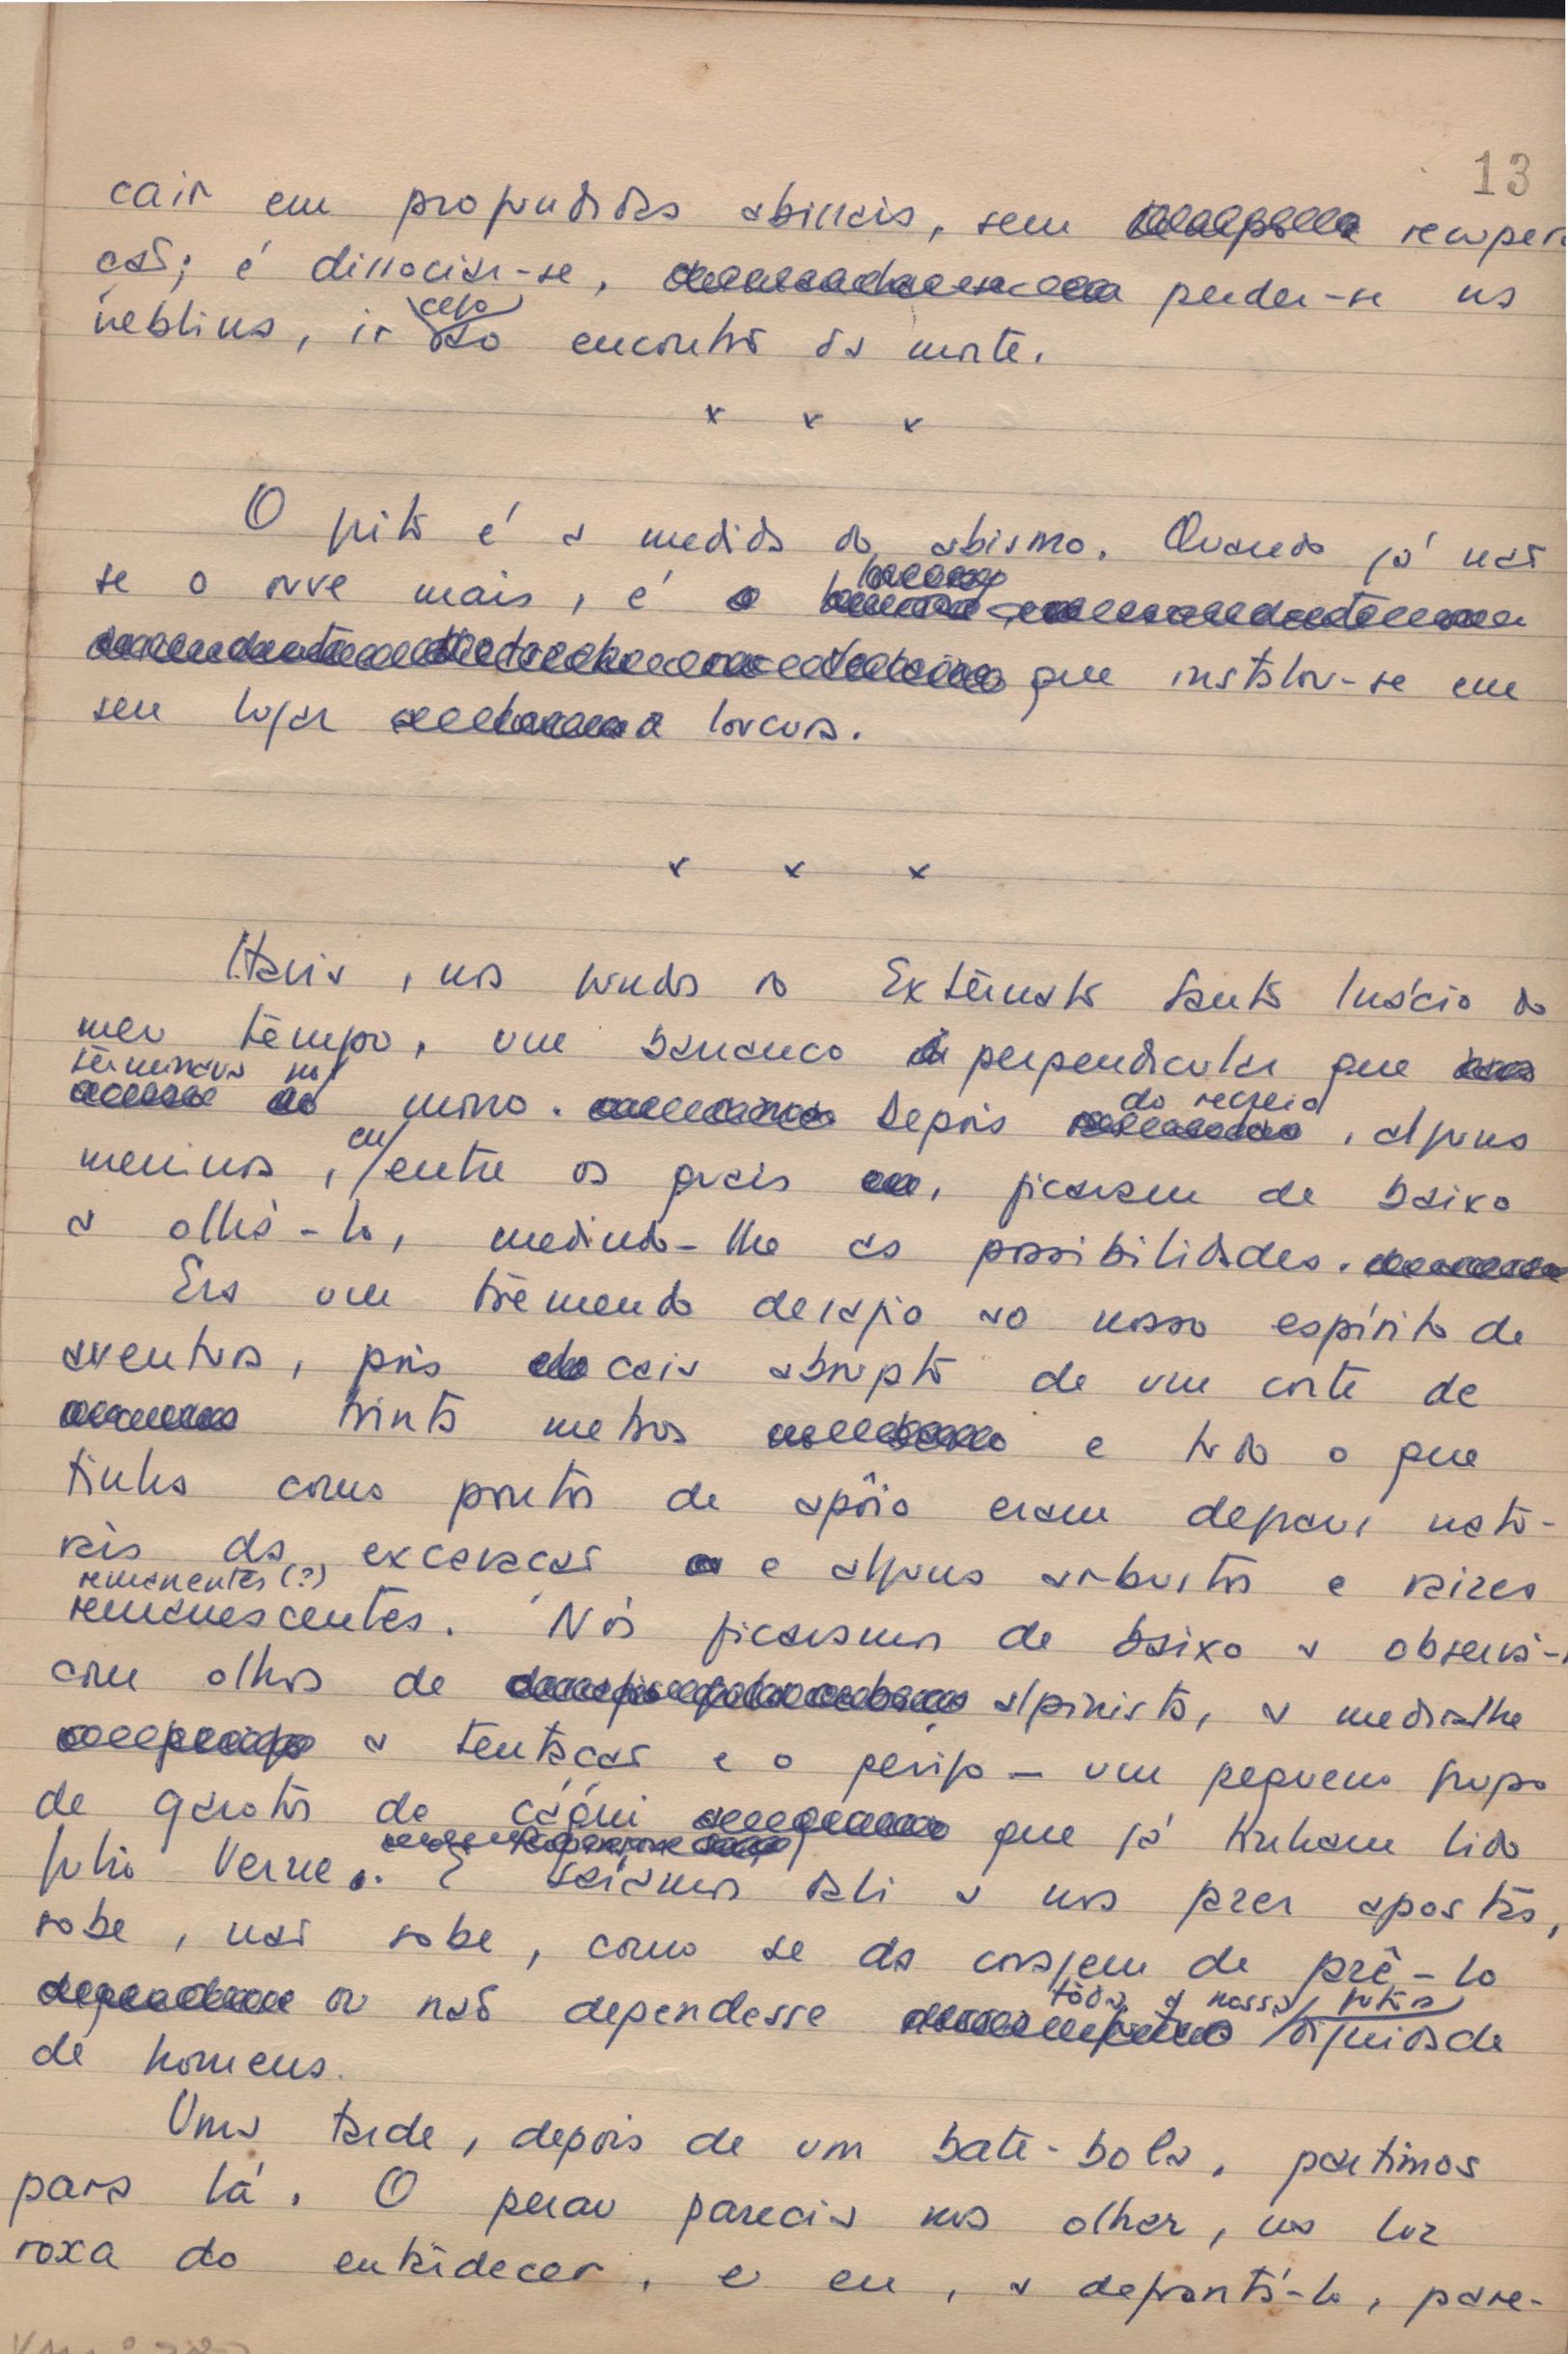 13
cair em profundidas abissais, sem recupera
ção; é dissociar-se, perder-se na
cego
neblina, ir ao encontro da morte.
x x x
O grito é a medida do abismo. Quando já não
se o ouve mais, é
que instalou-se em
seu lugar a loucura.
x x x
Havia, nos fundos do Externato Santo Inácio do
meu tempo, um barranco perpendicular que
terminava no
morro. Depois do recreio, alguns
meninos, eu entre os quais, ficavam de baixo
a olhá-lo, medindo-lhe as possibilidades.
Era um tremendo desafio ao nosso espírito de
aventura, pois caia abrupto de um corte de
trinta metros e tudo o que
tinha como pontos de apôio eram degraus natu-
rais da excavação e alguns arbustos e raizes
remanentes (?)
remanescentes. Nós ficavamos de baixo a observá-
com olhos de alpinista, a medir-lhe
a tentação e o perigo — um pequeno grupo
de garotos de cáqui que já tinham lido
Julio Verne. E saíamos dali a nos fazer apostas,
sobe, não sobe, como se da coragem de fazê-lo
toda a nossa futura
ou não dependesse dignidade
de homens.
Uma tarde, depois de um bate-bola, partimos
para lá. O perau parecia nos olhar, na luz
roxa do entardecer, e eu, a defrontá-lo, pare-